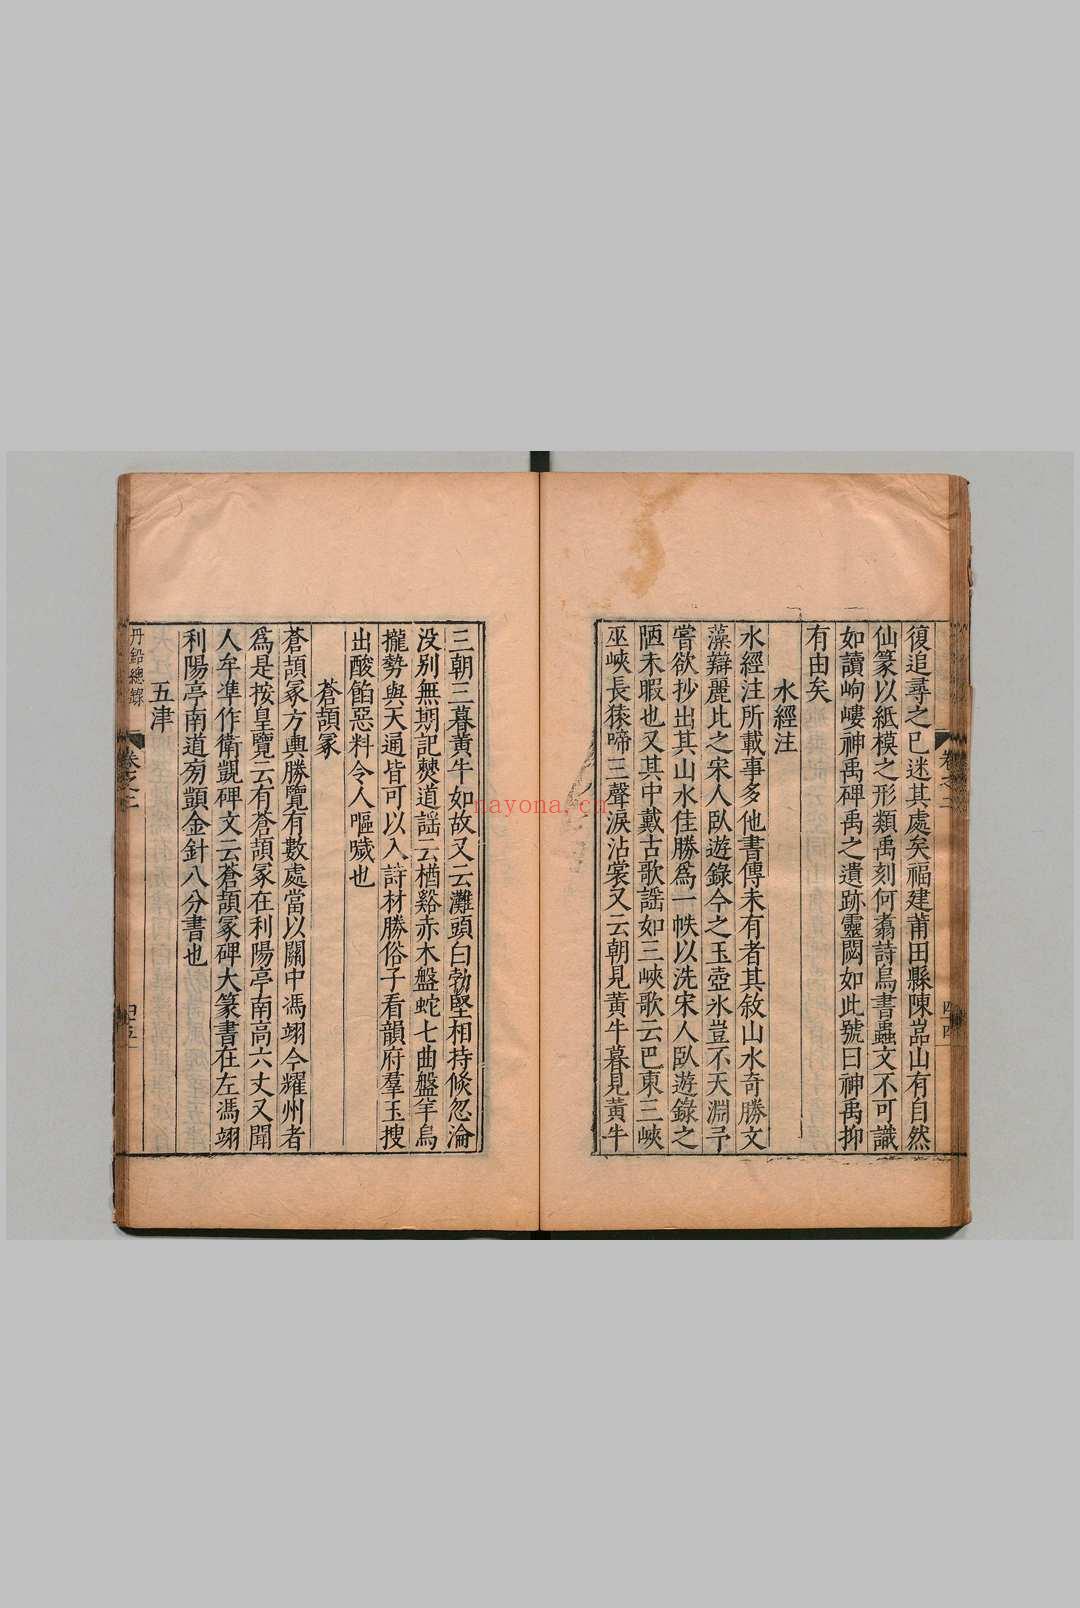 復追尋之已迷其處矣福建莆田縣陳嵓山有自然
仙篆以紙模之形類禹刻何翥詩鳥書蟲文不可識
如讀岣嶁神禹碑禹之遺跡靈閟如此號曰神禹抑
有由矣
水經注
水經注所載事多他書傳未有者其敘山水奇勝文
藻辯麗比之宋人臥遊錄今之玉壺氷豈不天淵予
嘗欲抄出其山水佳勝爲一帙以洗宋人臥遊錄之
陋未暇也又其中載古歌謡如三峽歌云巴東三峽
巫峽長猿啼三聲淚沾裳又云朝見黃牛暮見黃牛
三朝三暮黃牛如故又云灘頭白勃堅相持倐忽淪
没别無期記僰道謡云楢谿赤木盤蛇七曲盤羊烏
攏勢與天通皆可以入詩材勝俗子看韻府羣玉搜
出酸餡惡料令人嘔噦也
蒼頡冢
蒼頡冢方輿勝覽有數處當以關中馮翊今耀州者
爲是按皇覽云有蒼頡冢在利陽亭南高六丈又聞
人牟凖作衛覬碑文云蒼頡冢碑大篆書在左馮翊
利陽亭南道旁顗金針八分書也
五津
丹鉛總録
卷之二
四十五
卷之二
四十四
nayona.cn